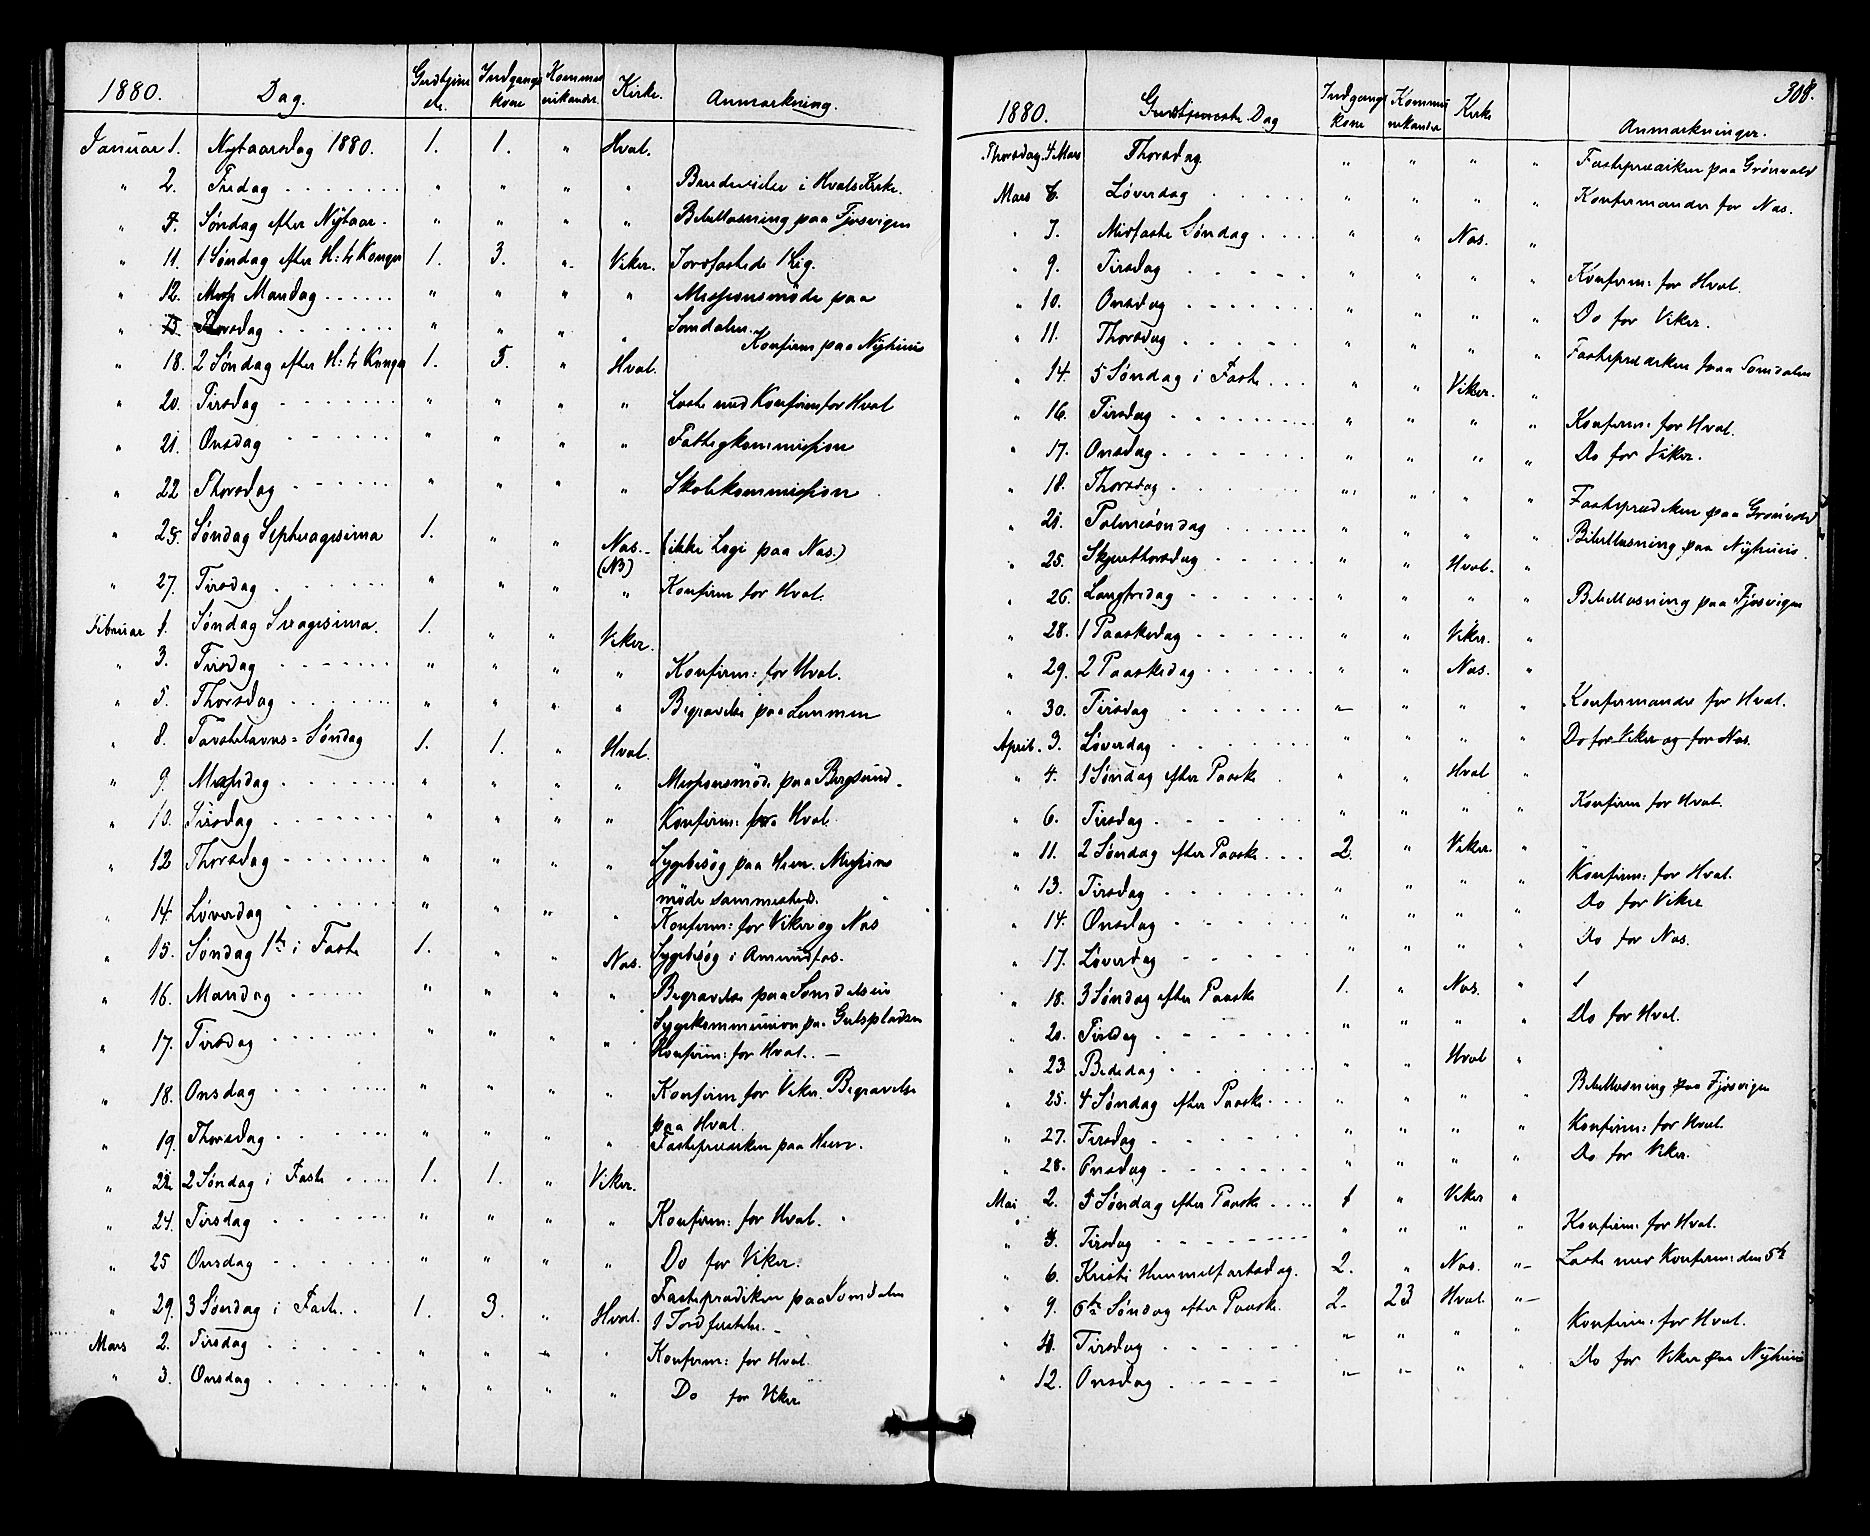 1880. Dag. Gudstjeneste. Indgangskone Kommunikander. Kirke. Anmærkning.
Januar 1. Nytaarsdag 1880. 1. 1. " Hval.
" 2. Fredag " " " " i Hvals Kirke.
" 4. Søndag efter Nytaar. " " " Bibellæsning paa Fjøsvigen
" 11. 1 Søndag efter H: 3 Konger 1. 3. " Viker. Jordfæstede 1 Lig.
" 12. Mandag " " " " Missionsmøde paa
" 15. Thorsdag " " " " Somdalen. Konfirm paa Nyhuus
" 18. 2 Søndag efter H: 3 Konger 1. 5. " Hval.
" 20. Tirsdag " " " " Læste med Konfirm for Hval
" 21. Onsdag " " " " Fattigkommission
" 22 Thorsdag " " " " Skolekommission
" 25. Søndag Septuagesima 1. " " Næs. (ikke Logi paa Næs.)
(NB)
" 27. Tirsdag " " " " Konfirm for Hval.
Februar 1. Søndag Sexagesima. 1. " " Viker.
" 3. Tirsdag " " " " Konfirm: for Hval.
" 5. Thorsdag " " " " Begravelse paa Lemmen
" 8. Fastelavns=Søndag 1. 1. " Hval.
" 9. " " " " Missionsmøde paa Bergsund
" 10. Tirsdag " " " " Konfirm: for Hval
" 12 Thorsdag " " " " Sygebesøg paa Heen. Missions
møde sammesteds.
" 14. Løverdag " " " " Konfirm: for Viker og Næs
" 15. Søndag 1ste i Faste 1. " " Næs. Sygebesøg i
" 16. Mandag " " " " Begravelse paa
Sygekommunion paa
" 17. Tirsdag " " " " Konfirm: for Hval. —
" 18. Onsdag " " " Konfirm for Viker. Begravelse
paa Hval.
" 19. Thorsdag " " " " Fasteprædiken paa Heen.
" 22. 2 Søndag i Faste 1. 1. " Viker.
" 24. Tirsdag " " " " Konfirm: for Hval.
" 25 Onsdag " " " " Do for Viker.
" 29. 3 Søndag i Faste 1. 3. " Hval. Fasteprædiken paa Somdalen
1 Jordfæstelse.
Mars 2. Tirsdag " " " " Konfirm: for Hval.
" 3. Onsdag " " " " Do for Viker
308.
1880. Gudstjeneste Dag Indgangskone Kommunikander Kirke Anmærkninger.
Thorsdag 4 Mars Thorsdag " " " " Fasteprædiken paa Grønvold
Mars 6. Løverdag " " " " Konfirmander for Næs.
" 7. Midfaste Søndag " " Næs. "
" 9. Tirsdag " " " " Konfirm: for Hval.
" 10. Onsdag " " " " Do for Viker.
" 11. Thorsdag " " " " Fasteprædiken paa Somdalen
" 14. 5 Søndag i Faste " " Viker. "
" 16. Tirsdag " " " " Konfirm: for Hval.
" 17. Onsdag " " " " Do for Viker.
" 18. Thorsdag " " " " Fasteprædiken paa Grønvold
" 21. Palmesøndag " " " " Bibellæsning paa Nyhuus.
" 25. Skjærthorsdag " " Hval. "
" 26. Langfredag " " " " Bibellæsning paa Fjøsvigen
" 28. 1 Paaskedag " " Viker. "
" 29. 2 Paaskedag " " Næs. "
" 30. Tirsdag " " " " Konfirmander for Hval.
April. 3. Løverdag " " " " Do for Viker og for Næs.
" 4. 1 Søndag efter Paaske " " Hval "
" 6. Tirsdag " " " " Konfirm for Hval.
" 11. 2 Søndag efter Paaske 2. " Viker. "
" 13. Tirsdag " " " " Konfirm: for Hval.
" 14. Onsdag " " " " Do for Viker
" 17. Løverdag " " " " Do for Næs.
" 18. 3 Søndag efter Paaske 1. " Næs. "
" 20. Tirsdag " " " " Do for Hval.
" 23. Bededag " " Hval "
" 25. 4 Søndag efter Paaske " " " " Bibellæsning paa Fjøsvigen
" 27. Tirsdag " " " " Konfirm: for Hval.
" 28. Onsdag " " " " Do for Viker.
Mai 2. 5 Søndag efter Paaske 1 " Viker "
" 4. Tirsdag " " " " Konfirm: for Hval.
" 6. Kristi Himmelfartsdag. 2. " Næs. " Læste med Konfirm: den 5te
" 9. 6te Søndag efter Paaske. 2. 23 Hval "
" 11. Tirsdag " " " " Konfirm: for Hval.
" 12. Onsdag " " " " Do for Viker paa Nyhuus